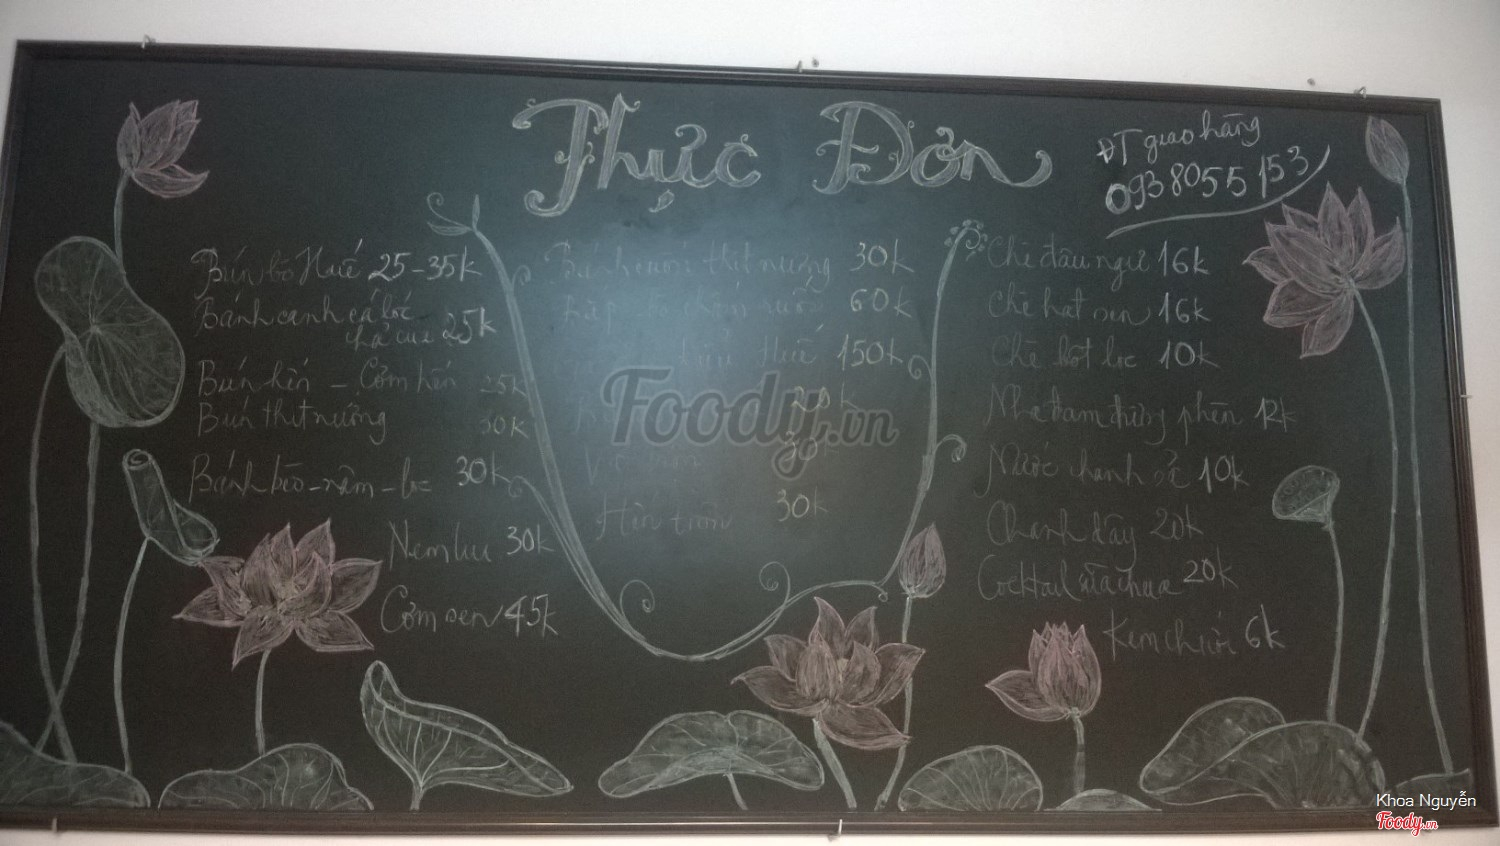 Thực Đơn
ĐT giao hàng
0938055153
Bún bò Huế 25-35k
Bánh canh cá lóc
chả cua 25k
Bún hến - Cơm hến 25k
Bún thịt nướng 30k
Bánh bèo - nậm - lọc 30k
Nem lụi 30k
Cơm sen 45k
Bánh cuốn thịt nướng 30k
60k
Huế 150k
30k
Hến trộn 30k
Chè đậu ngự 16k
Chè hạt sen 16k
Chè bột lọc 10k
Nha đam đường phèn 12k
Nước chanh 10k
Chanh dây 20k
Cocktail sữa chua 20k
Kem chuối 6k
Foody.vn
Khoa Nguyễn
Foody.vn